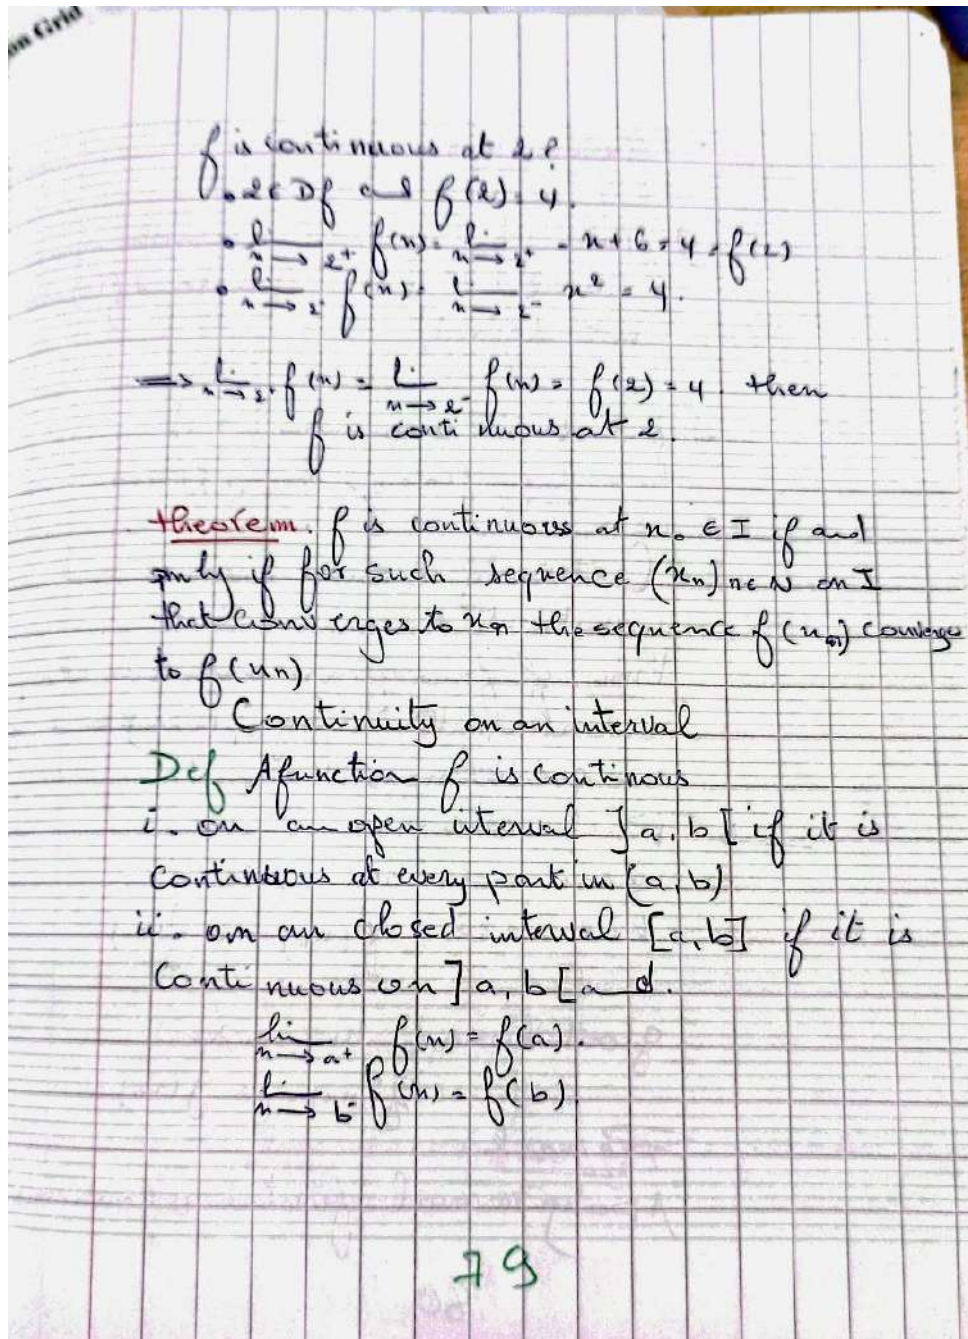 on Grid
f is continuous at 2 ?
• 2 ∈ Df and f(2) = 4.
• lim x→2⁺ f(x) = lim x→2⁺ -x + 6 = 4 = f(2)
• lim x→2 f(x) = lim x→2⁻ x² = 4.
⟹ lim x→2⁺ f(x) = lim x→2⁻ f(x) = f(2) = 4 then
f is continuous at 2.
theorem. f is continuous at x₀ ∈ I if and
only if for such sequence (xₙ) n∈N on I
that converges to xₙ the sequence f(xₙ) converge
to f(xₙ)
Continuity on an interval
Def A function f is continous
i. on an open interval ]a, b[ if it is
continuous at every point in (a, b)
ii. on an closed interval [a, b] if it is
continuous on ]a, b[ and.
lim x→a⁺ f(x) = f(a).
lim x→b⁻ f(x) = f(b).
79